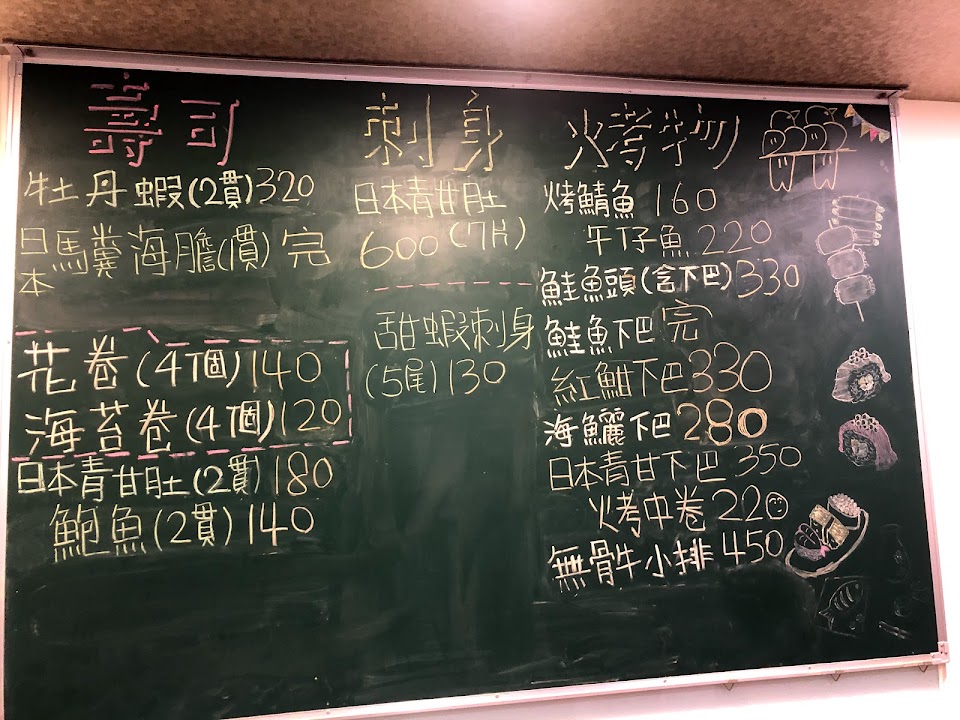 壽司
牡丹蝦(2貫)320
日本馬糞海膽(1貫)完
花卷(4個)140
海苔卷(4個)120
日本青甘肚(2貫)180
鮑魚(2貫)140
刺身
日本青甘肚
600(7片)
甜蝦刺身
(5尾)130
烤物
烤鯖魚160
午仔魚220
鮭魚頭(含下巴)330
鮭魚下巴完
紅魽下巴330
海鱺下巴280
日本青甘下巴350
烤中卷220
無骨牛小排450